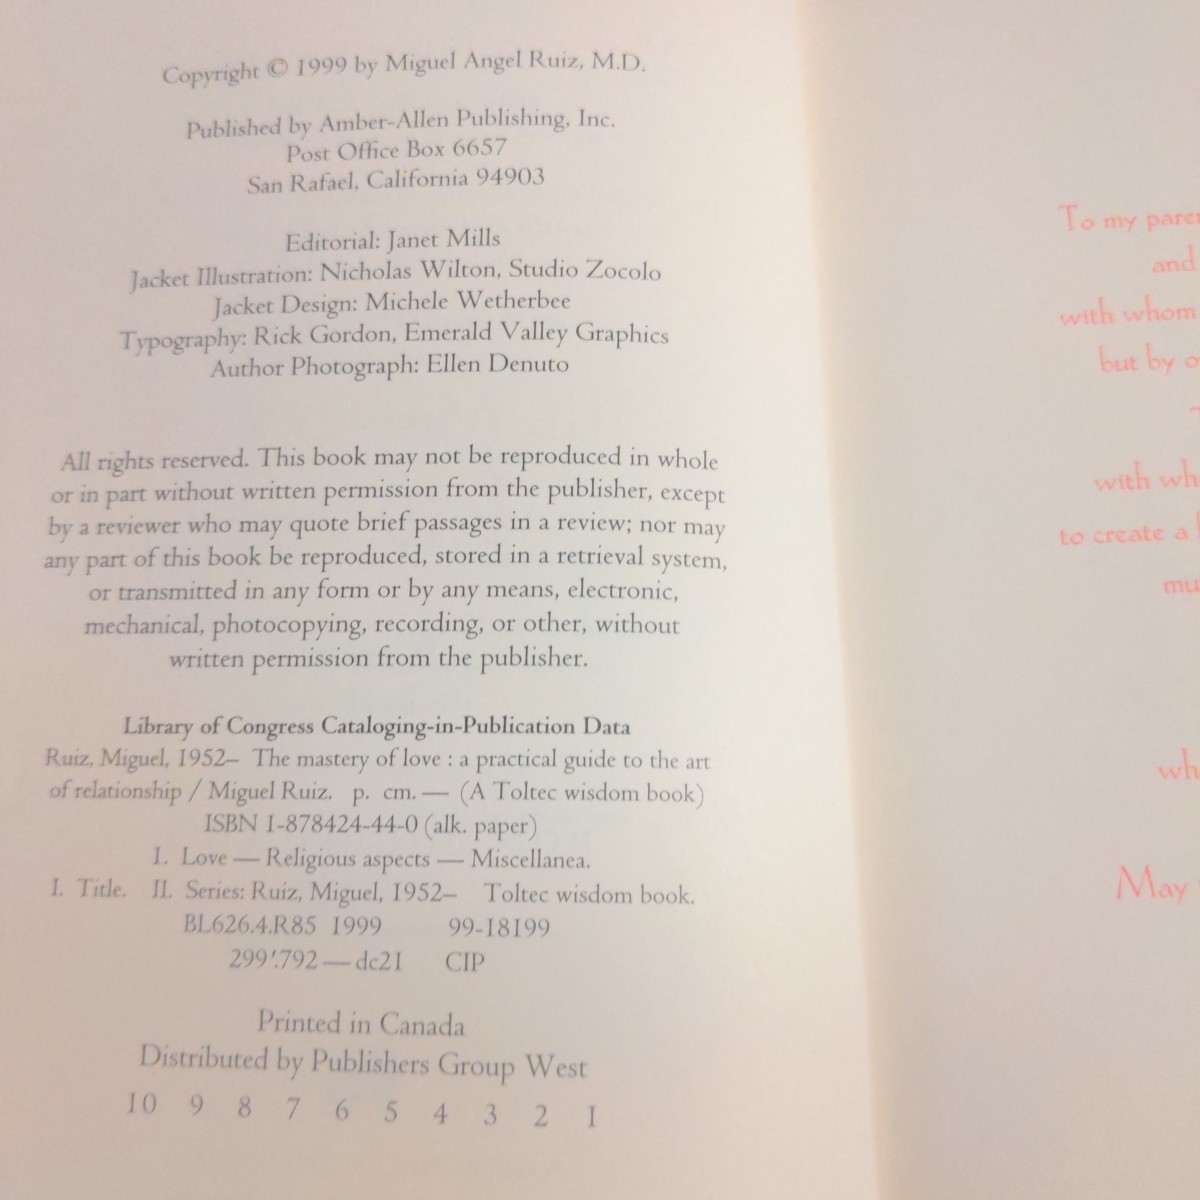 Copyright © 1999 by Miguel Angel Ruiz, M.D.
Published by Amber-Allen Publishing, Inc.
Post Office Box 6657
San Rafael, California 94903
Editorial: Janet Mills
Jacket Illustration: Nicholas Wilton, Studio Zocolo
Jacket Design: Michele Wetherbee
Typography: Rick Gordon, Emerald Valley Graphics
Author Photograph: Ellen Denuto
All rights reserved. This book may not be reproduced in whole
or in part without written permission from the publisher, except
by a reviewer who may quote brief passages in a review; nor may
any part of this book be reproduced, stored in a retrieval system,
or transmitted in any form or by any means, electronic,
mechanical, photocopying, recording, or other, without
written permission from the publisher.
Library of Congress Cataloging-in-Publication Data
Ruiz, Miguel, 1952– The mastery of love : a practical guide to the art
of relationship / Miguel Ruiz. p. cm. — (A Toltec wisdom book)
ISBN 1-878424-44-0 (alk. paper)
1. Love — Religious aspects — Miscellanea.
I. Title. II. Series: Ruiz, Miguel, 1952– Toltec wisdom book.
BL626.4.R85 1999 99-18199
299'.792 — dc21 CIP
Printed in Canada
Distributed by Publishers Group West
10 9 8 7 6 5 4 3 2 1
To my
and
with whom
but by
with
to create a
May